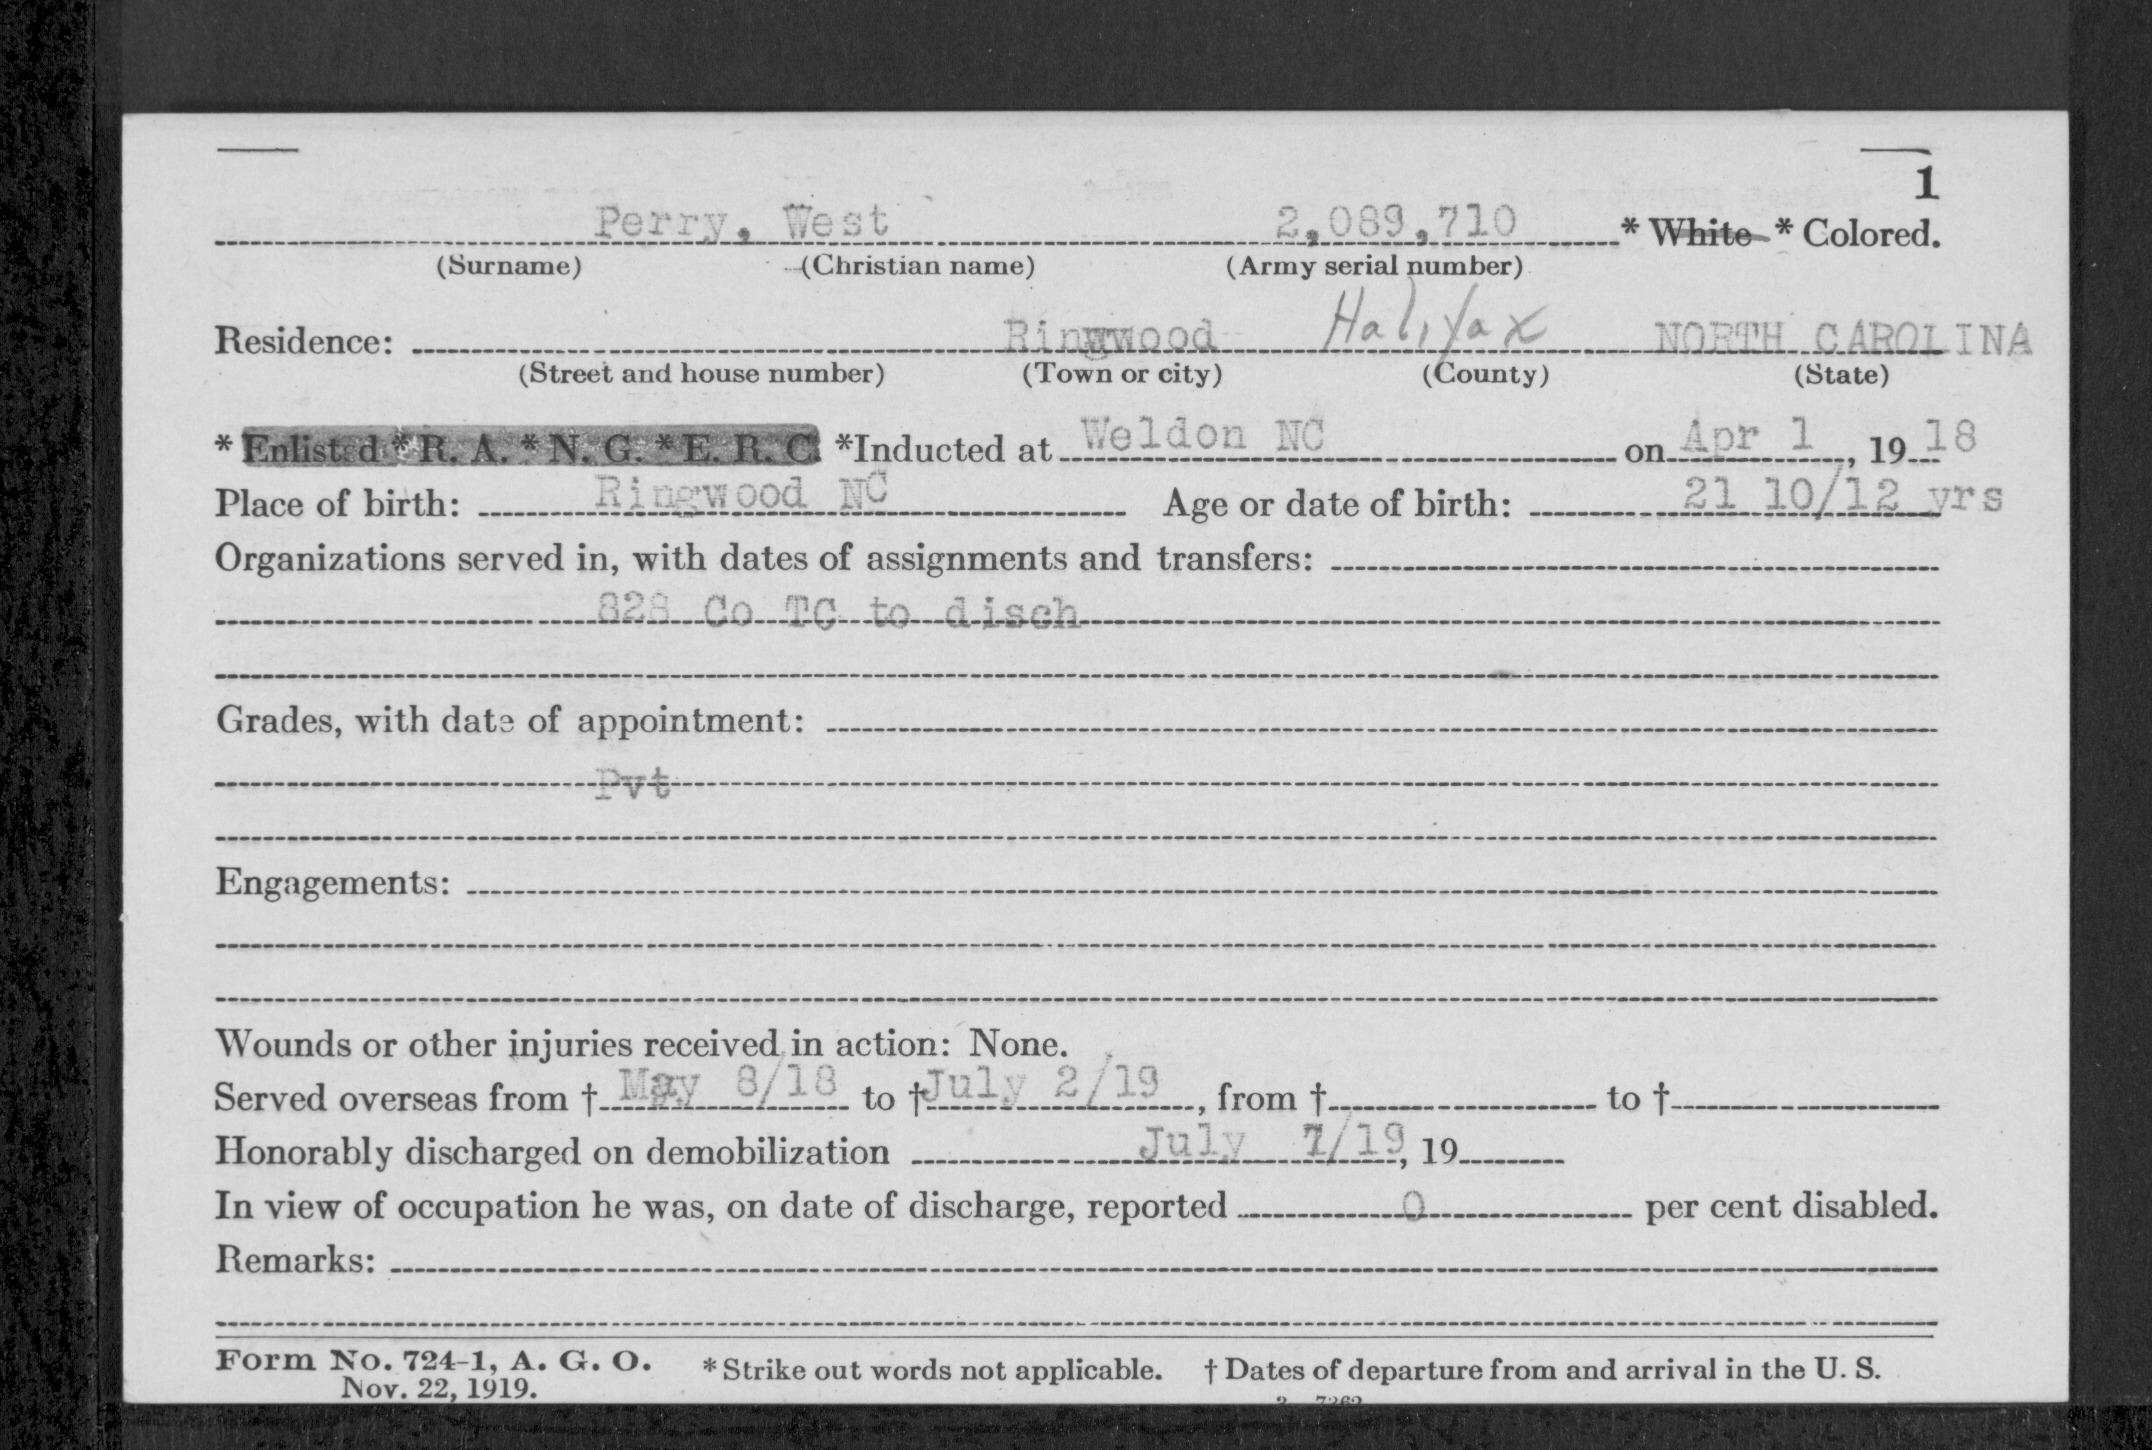 1
Perry, West 2,089,710 * White * Colored.
(Surname) (Christian name) (Army serial number)
Residence: Ringwood Halifax NORTH CAROLINA
(Street and house number) (Town or city) (County) (State)
* Enlisted * R. A. * N. G. * E. R. C. *Inducted at Weldon NC on Apr 1, 19 18
Place of birth: Ringwood NC Age or date of birth: 21 10/12 yrs
Organizations served in, with dates of assignments and transfers:
828 Co TC to disch
Grades, with date of appointment:
Pvt
Engagements:
Wounds or other injuries received in action: None.
Served overseas from † May 8/18 to † July 2/19, from † to †
Honorably discharged on demobilization July 7/19, 19
In view of occupation he was, on date of discharge, reported 0 per cent disabled.
Remarks:
Form No. 724-1, A. G. O. * Strike out words not applicable. † Dates of departure from and arrival in the U. S.
Nov. 22, 1919.